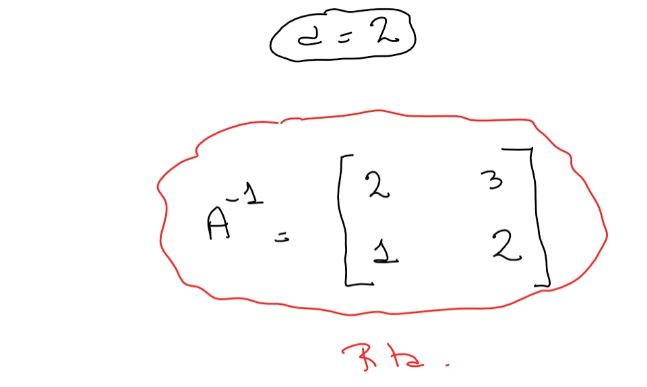 d = 2
A⁻¹ = [ 2 3
1 2 ]
Rta.